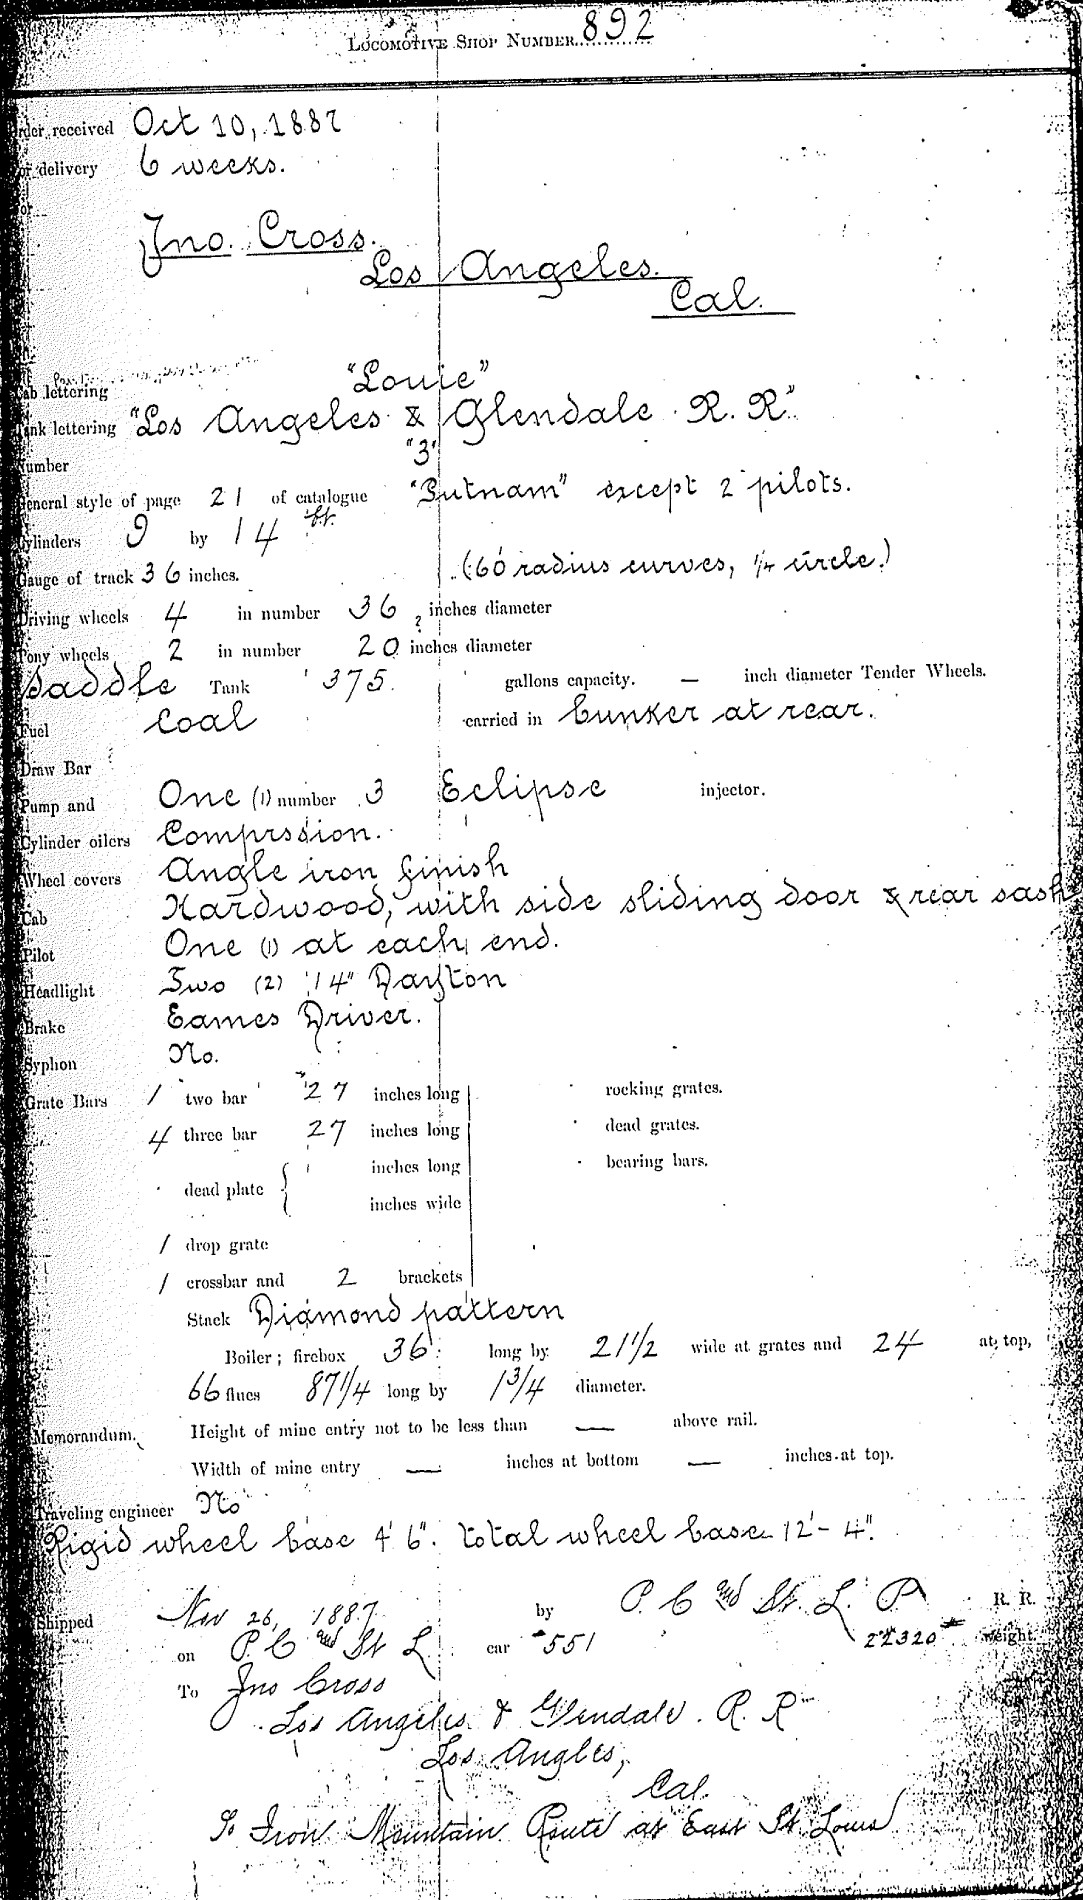 LOCOMOTIVE SHOP NUMBER 892
Order received Oct 10, 1887
For delivery 6 weeks.
For
Jno. Cross.
Los Angeles.
Cal.
Cab lettering "Louie"
Tank lettering "Los Angeles & Glendale R. R."
Number "3"
General style of page 21 of catalogue "Putnam" except 2 pilots.
Cylinders 9 by 14
Gauge of track 36 inches. (60' radius curves, 1/4 circle.)
Driving wheels 4 in number 36 inches diameter
Pony wheels 2 in number 20 inches diameter
Saddle Tank 375 gallons capacity. — inch diameter Tender Wheels.
Fuel Coal carried in bunker at rear.
Draw Bar
Pump and One (1) number 3 Eclipse injector.
Cylinder oilers Comprssion.
Wheel covers Angle iron finish
Cab Hardwood, with side sliding door & rear sash
Pilot One (1) at each end.
Headlight Two (2) 14" Dayton
Brake Eames Driver.
Syphon No.
Grate Bars 1 two bar 27 inches long rocking grates.
4 three bar 27 inches long dead grates.
dead plate { inches long bearing bars.
inches wide
1 drop grate
1 crossbar and 2 brackets
Stack Diamond pattern
Boiler; firebox 36 long by 21 1/2 wide at grates and 24 at top,
66 flues 87 1/4 long by 1 3/4 diameter.
Memorandum. Height of mine entry not to be less than — above rail.
Width of mine entry — inches at bottom — inches at top.
Traveling engineer No
Rigid wheel base 4' 6". total wheel base 12'-4".
Shipped Nov 26, 1887 by P. C and St. L. P R. R.
on P. C and St L car #551 22320# weight.
To Jno Cross
Los Angeles & Glendale. R. R
Los Angles,
Cal.
To Iron Mountain Route at East St. Louis